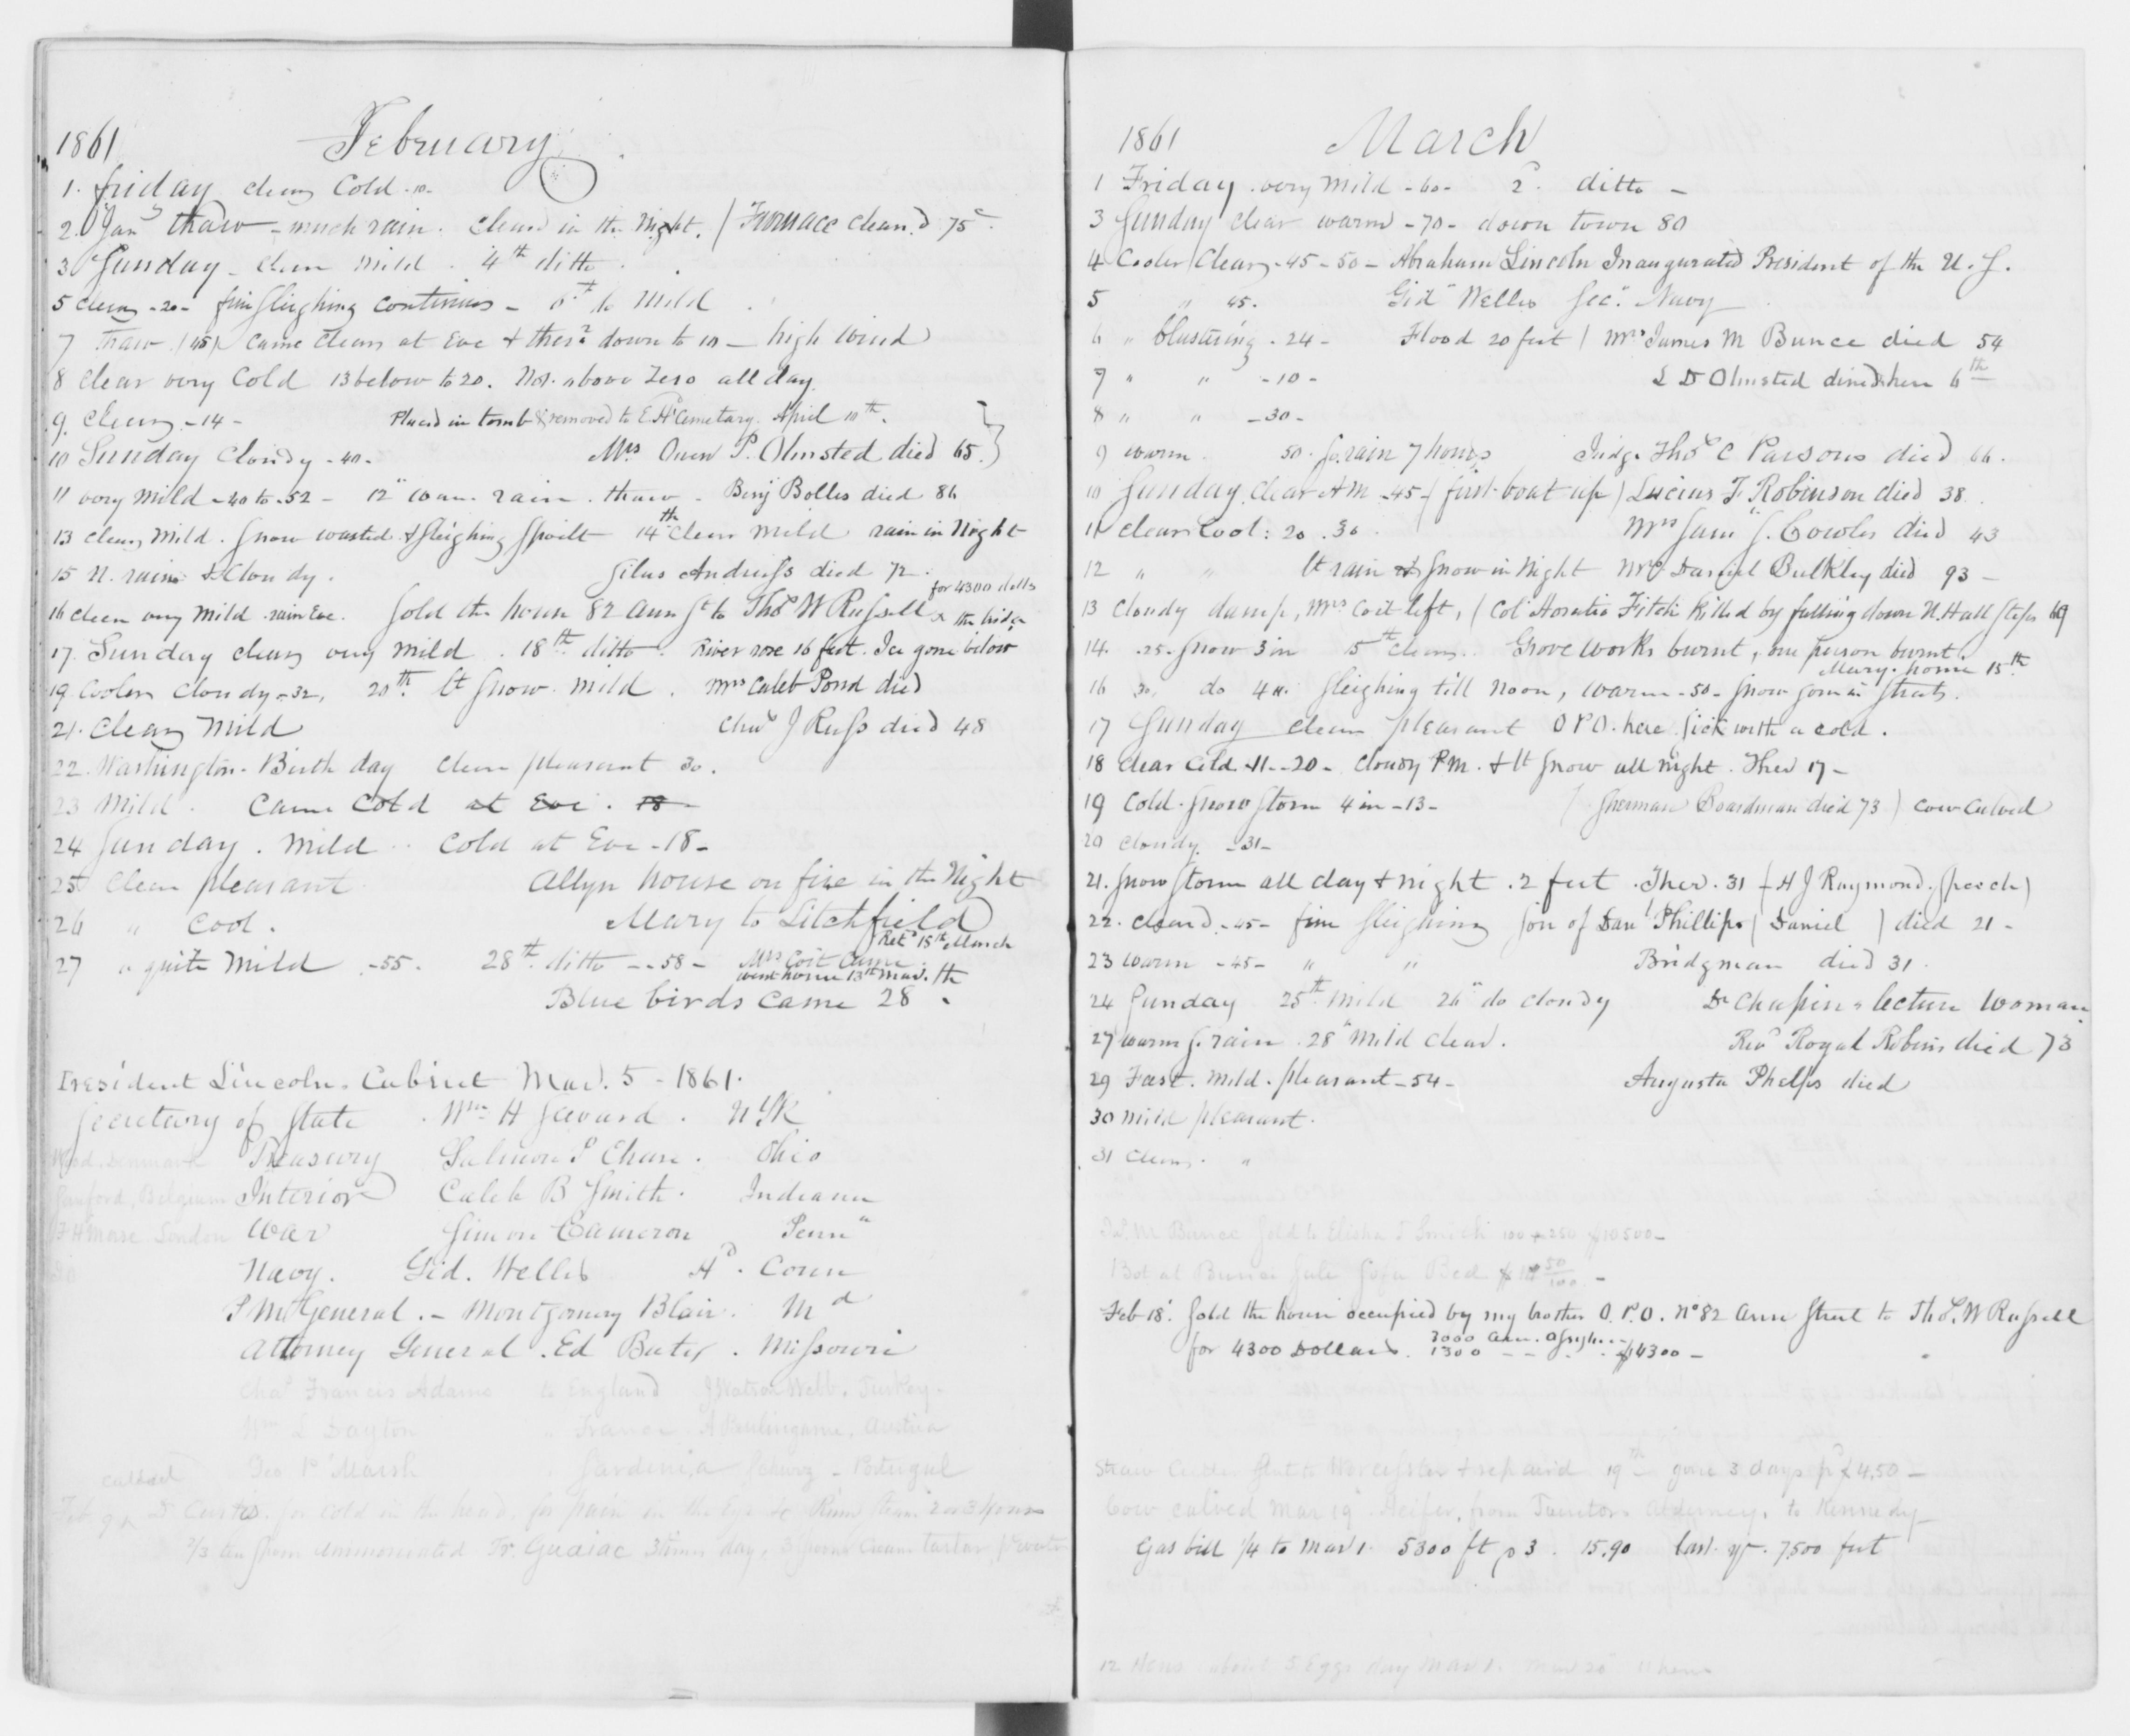 1861 February
1. friday clear Cold -10-
2. "Jany thaw - much rain. cleard in the Night. / Furnace clean.d 75c
3 Sunday - clear mild . 4th ditto .
5 clear -20- fine sleighing continues - 6th do mild
7 thaw (45) came clear at Eve & ther down to 10 - high wind
8 clear very Cold 13 below to 20. Not above zero all day.
9. clear -14- Placed in tomb & removed to E.H. Cemetary. April 10th.
10 Sunday Cloudy -40- Mrs Owen P. Olmsted died 65.
11 very mild -40 to -52 - 12" warm rain . thaw - Benj Bolles died 86
13 clear mild. snow wasted & sleighing spoilt 14th clear mild rain in Night
15 N. rain & Cloudy. Silas Andruss died 72.
for 4300 dolls
16 clear very mild . rain Eve. Sold the house 82 Ann St to Thos W Russell
17. Sunday clear very mild . 18th ditto . River rose 16 feet. Ice gone below the bridge
19. Cooler cloudy -32, 20th. lt snow. mild . Mrs Caleb Pond died
21. Clear mild Chas J Russ died 48
22. Washington. Birth day clear pleasant 30.
23 mild . came cold at Eve . 18
24 Sunday . mild .. cold at Eve -18-
25 clear pleasant Allyn house on fire in the Night
26 " Cool. Mary to Litchfield
Retd 15th March
27 " quite mild -55. 28th ditto -.58- Mrs Coit Came
went home 13th Mar.
Blue birds came 28th.
President Lincoln. Cabinet Mar. 5 - 1861.
Secretary of State . Wm H Seward . N.YK
Treasury Salmon P Chase . Ohio
Sanford, Belgium Interior Caleb B Smith. Indiana
F H Morse London War Simon Cameron Penna
Navy. Gid. Welles Hd. Conn
P M General. - Montgomery Blair. Md
Attorney General . Ed Bates . Missouri
Chas Francis Adams to England J Watson Webb. Turkey.
Wm L Dayton " France A Burlingame, Austria
Geo P Marsh " Sardinia Schurz - Portugal
Feb 9 Dr Curtis. for cold in the head, for pain in the Eye
2/3 tea spoon ammoniated Tr. Guaiac 3 times day, 3 spoons Cream tartar
1861 March
1 Friday . very mild -60- 2d. ditto -
3 Sunday clear warm -70- down town 80
4 Cooler Clear -45-50 - Abraham Lincoln Inaugurated President of the U.S.
5 " 45. Gidn Welles Secy Navy
6 " blustering . 24 - Flood 20 feet / Mrs James M Bunce died 54
7 " " -10- L D Olmsted dined here 6th
8 " " -30-
9 warm . 50. S. rain 7 hours Judge Thos C Parsons died 66.
10 Sunday. Clear AM -45- / first boat up / Lucius F. Robinson died 38.
11 clear Cool: 20 . 30 . Mrs Saml S. Cowles died 43
12 " " lt rain & snow in Night Mrs Daniel Bulkley died 93 -
13 Cloudy damp, Mrs Coit left, / Col Horatio Fitch killed by falling down N. Hall steps 69
14. .25. snow 3 in 15th clear .. Grove Works burnt, one person burnt
Mary. home 15th
16 30, do 4 in. sleighing till Noon, warm -50- snow gone in streets.
17 Sunday clear pleasant O P O. here sick with a cold.
18 clear cold -11 - 20 - Cloudy P.M. & lt snow all night. Ther 17 -
19 Cold. snow storm 4 in -13- / Sherman Boardman died 73 / cow Calved
20 cloudy. -31-
21. Snow storm all day & night . 2 feet . Ther. 31 / H J Raymond. Speech /
22. cleard -45- fine sleighing Son of Danl Phillips (Daniel ) died 21 -
23 warm -45- " " Bridgman died 31.
24 Sunday 25th mild 26" do cloudy Dr Chapins lecture Woman
27 warm S. rain . 28" mild clear. Revd Royal Robins died 73
29 Fast. mild. pleasant -54- Augusta Phelps died
30 mild pleasant.
31 Clear . "
Jas. M Bunce Sold to Elisha T Smith 100 x 250 $10500-
Bot at Bunce Sale Sofa Bed
Feb 18. Sold the house occupied by my brother O.P.O. No 82 Ann Street to Thos. W Russell
for 4300 Dollars. 3000
1300 - - $4300 -
Straw Cutter sent to Worcester & repaird 19th gone 3 days pd $4.50 -
Cow calved Mar 19 Heifer, from Taintors Alderney, to Kennedy
Gas bill 1/4 to Mar 1. 5300 ft p 3 . 15.90 last yr. 7,500 feet
12 Hens about 5 Eggs day Mar 1.